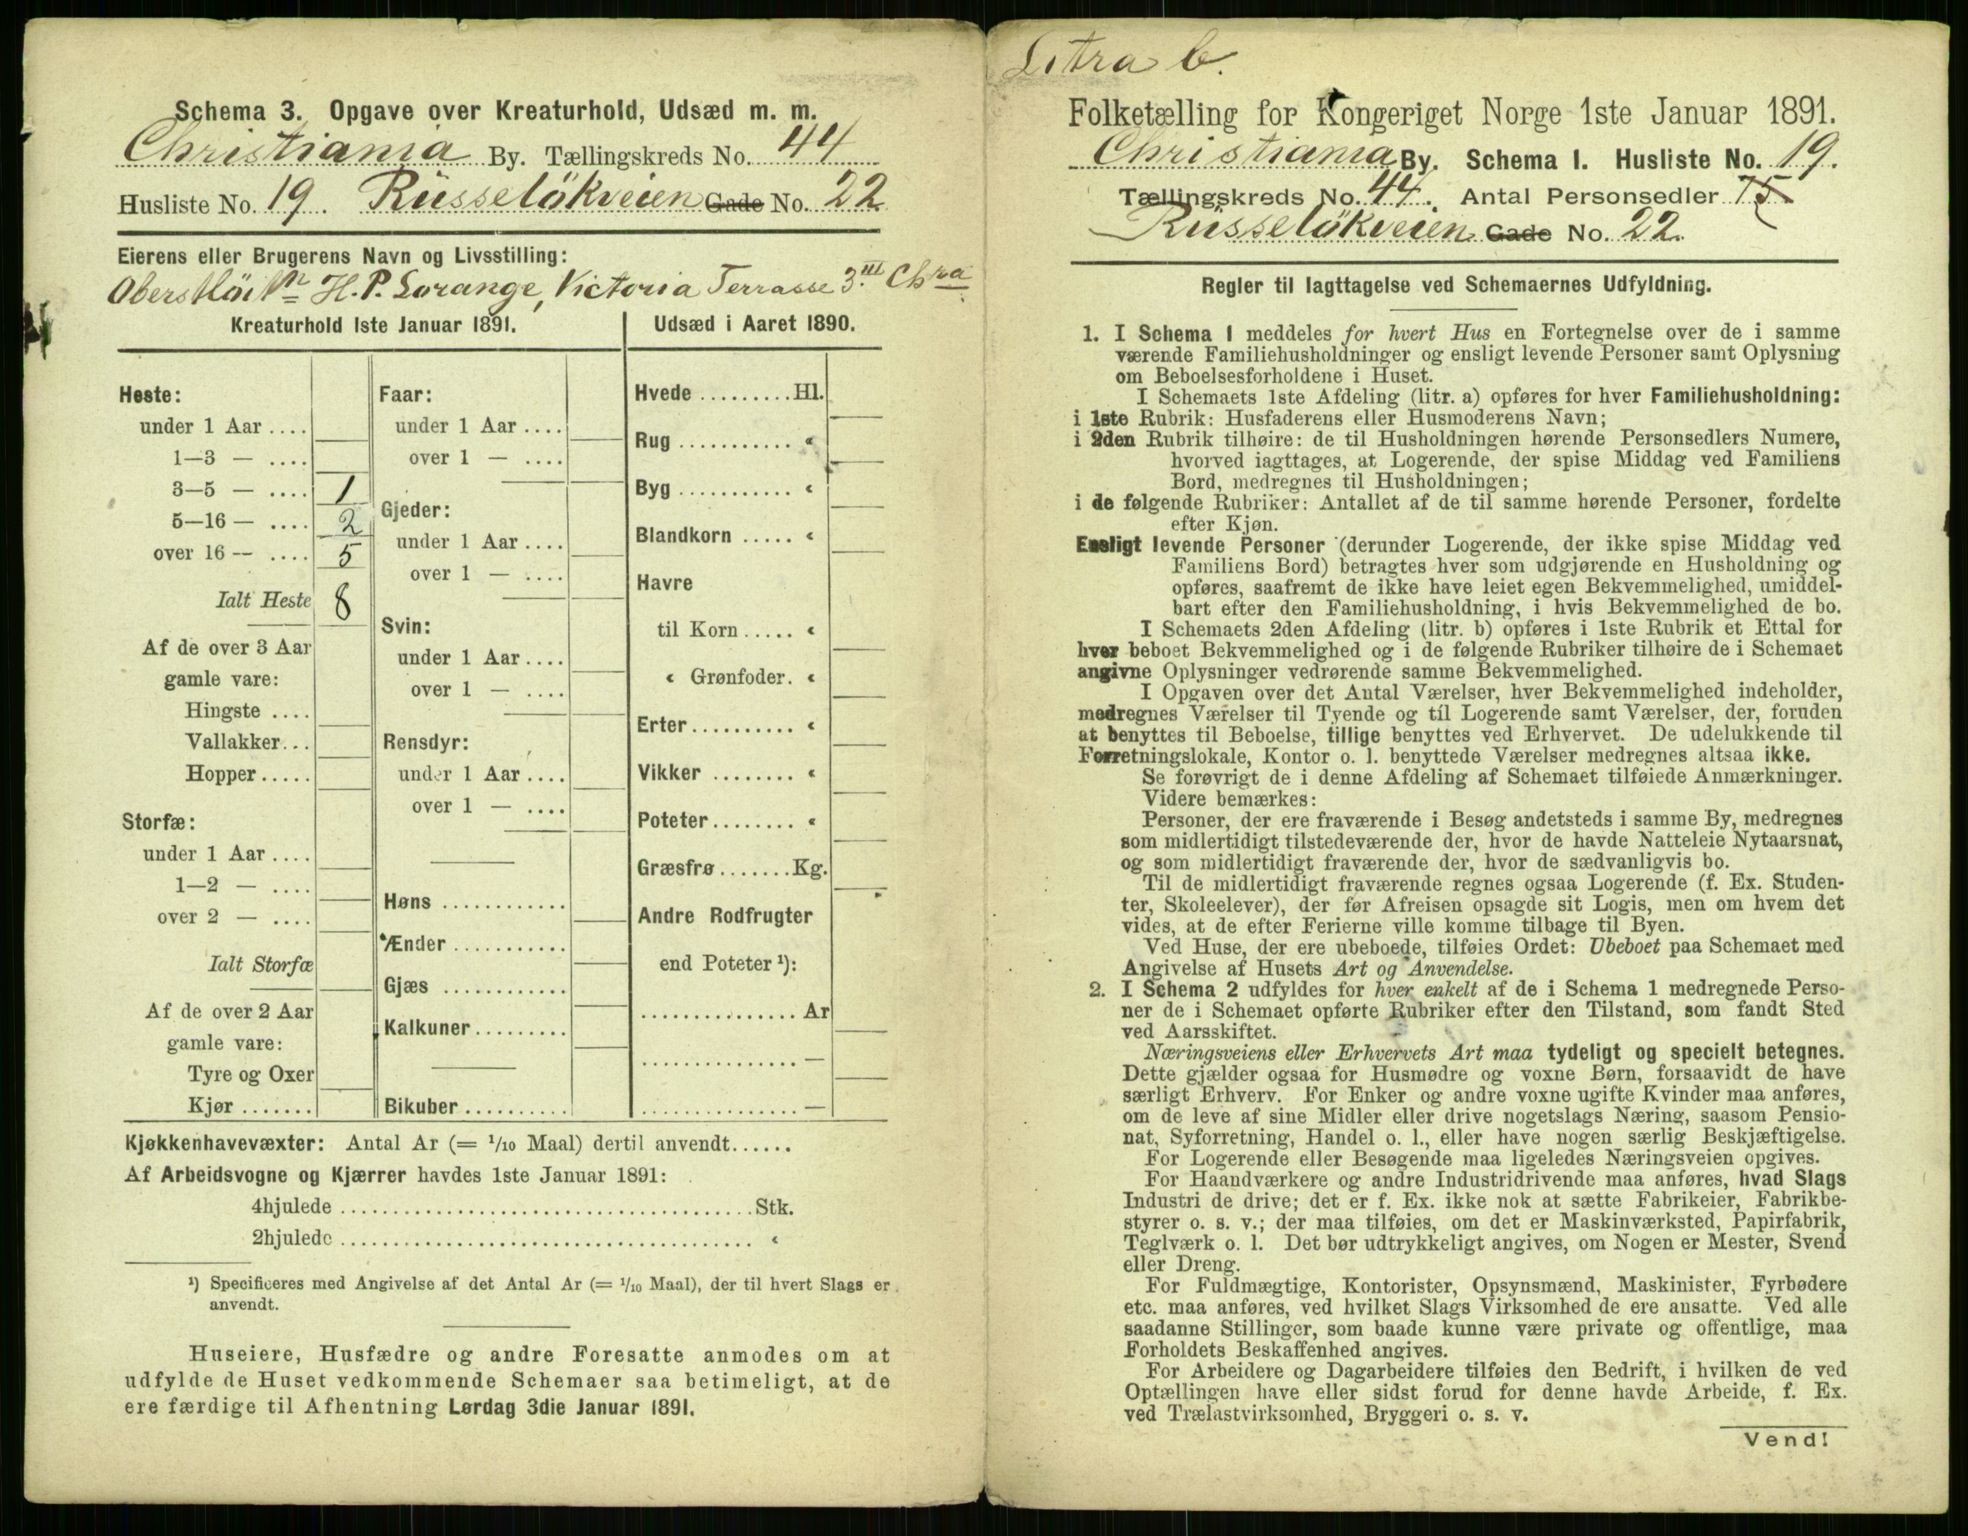 Schema 3. Opgave over Kreaturhold, Udsæd m. m.
Christiania By. Tællingskreds No. 44
Husliste No. 19. Rüsseløkveien Gade No. 22
Eierens eller Brugerens Navn og Livsstilling:
H. P. Lorange, Victoria Terrasse 3. III Chra
Kreaturhold 1ste Januar 1891.
Heste:
under 1 Aar ....
1—3 — ....
3—5 — .... 1
5—16 — .... 2
over 16 — .... 5
Ialt Heste 8
Af de over 3 Aar
gamle vare:
Hingste ....
Vallakker...
Hopper.....
Storfæ:
under 1 Aar ....
1—2 — ....
over 2 — ....
Ialt Storfæ
Af de over 2 Aar
gamle vare:
Tyre og Oxer
Kjør .......
Faar:
under 1 Aar ....
over 1 — ....
Gjeder:
under 1 Aar ....
over 1 — ....
Svin:
under 1 Aar ....
over 1 — ....
Rensdyr:
under 1 Aar ....
over 1 — ....
Høns ............
Ænder ...........
Gjæs ............
Kalkuner.........
Bikuber..........
Udsæd i Aaret 1890.
Hvede .........Hl.
Rug ........... «
Byg ........... «
Blandkorn ..... «
Havre
til Korn ..... «
« Grønfoder. «
Erter .......... «
Vikker ......... «
Poteter ........ «
Græsfrø.......Kg.
Andre Rodfrugter
end Poteter ¹):
...............Ar
............... —
............... —
Kjøkkenhavevæxter: Antal Ar (= 1/10 Maal) dertil anvendt......
Af Arbeidsvogne og Kjærrer havdes 1ste Januar 1891:
4hjulede ........................................Stk.
2hjulede ........................................ «
¹) Specificeres med Angivelse af det Antal Ar (= 1/10 Maal), der til hvert Slags er
anvendt.
Huseiere, Husfædre og andre Foresatte anmodes om at
udfylde de Huset vedkommende Schemaer saa betimeligt, at de
ere færdige til Afhentning Lørdag 3die Januar 1891.
Litra b.
Folketælling for Kongeriget Norge 1ste Januar 1891.
Christiania By. Schema I. Husliste No. 19.
Tællingskreds No. 44. Antal Personsedler 75
Rüsseløkveien Gade No. 22.
Regler til Iagttagelse ved Schemaernes Udfyldning.
1. I Schema 1 meddeles for hvert Hus en Fortegnelse over de i samme
værende Familiehusholdninger og ensligt levende Personer samt Oplysning
om Beboelsesforholdene i Huset.
I Schemaets 1ste Afdeling (litr. a) opføres for hver Familiehusholdning:
i 1ste Rubrik: Husfaderens eller Husmoderens Navn;
i 2den Rubrik tilhøire: de til Husholdningen hørende Personsedlers Numere,
hvorved iagttages, at Logerende, der spise Middag ved Familiens
Bord, medregnes til Husholdningen;
i de følgende Rubriker: Antallet af de til samme hørende Personer, fordelte
efter Kjøn.
Ensligt levende Personer (derunder Logerende, der ikke spise Middag ved
Familiens Bord) betragtes hver som udgjørende en Husholdning og
opføres, saafremt de ikke have leiet egen Bekvemmelighed, umiddel-
bart efter den Familiehusholdning, i hvis Bekvemmelighed de bo.
I Schemaets 2den Afdeling (litr. b) opføres i 1ste Rubrik et Ettal for
hver beboet Bekvemmelighed og i de følgende Rubriker tilhøire de i Schemaet
angivne Oplysninger vedrørende samme Bekvemmelighed.
I Opgaven over det Antal Værelser, hver Bekvemmelighed indeholder,
medregnes Værelser til Tyende og til Logerende samt Værelser, der, foruden
at benyttes til Beboelse, tillige benyttes ved Erhvervet. De udelukkende til
Forretningslokale, Kontor o. l. benyttede Værelser medregnes altsaa ikke.
Se forøvrigt de i denne Afdeling af Schemaet tilføiede Anmærkninger.
Videre bemærkes:
Personer, der ere fraværende i Besøg andetsteds i samme By, medregnes
som midlertidigt tilstedeværende der, hvor de havde Natteleie Nytaarsnat,
og som midlertidigt fraværende der, hvor de sædvanligvis bo.
Til de midlertidigt fraværende regnes ogsaa Logerende (f. Ex. Studen-
ter, Skoleelever), der før Afreisen opsagde sit Logis, men om hvem det
vides, at de efter Ferierne ville komme tilbage til Byen.
Ved Huse, der ere ubeboede, tilføies Ordet: Ubeboet paa Schemaet med
Angivelse af Husets Art og Anvendelse.
2. I Schema 2 udfyldes for hver enkelt af de i Schema 1 medregnede Perso-
ner de i Schemaet opførte Rubriker efter den Tilstand, som fandt Sted
ved Aarsskiftet.
Næringsveiens eller Erhvervets Art maa tydeligt og specielt betegnes.
Dette gjælder ogsaa for Husmødre og voxne Børn, forsaavidt de have
særligt Erhverv. For Enker og andre voxne ugifte Kvinder maa anføres,
om de leve af sine Midler eller drive nogetslags Næring, saasom Pensio-
nat, Syforretning, Handel o. l., eller have nogen særlig Beskjæftigelse.
For Logerende eller Besøgende maa ligeledes Næringsveien opgives.
For Haandværkere og andre Industridrivende maa anføres, hvad Slags
Industri de drive; det er f. Ex. ikke nok at sætte Fabrikeier, Fabrikbe-
styrer o. s. v.; der maa tilføies, om det er Maskinværksted, Papirfabrik,
Teglværk o. l. Det bør udtrykkeligt angives, om Nogen er Mester, Svend
eller Dreng.
For Fuldmægtige, Kontorister, Opsynsmænd, Maskinister, Fyrbødere
etc. maa anføres, ved hvilket Slags Virksomhed de ere ansatte. Ved alle
saadanne Stillinger, som baade kunne være private og offentlige, maa
Forholdets Beskaffenhed angives.
For Arbeidere og Dagarbeidere tilføies den Bedrift, i hvilken de ved
Optællingen have eller sidst forud for denne havde Arbeide, f. Ex.
ved Trælastvirksomhed, Bryggeri o. s. v.
Vend!